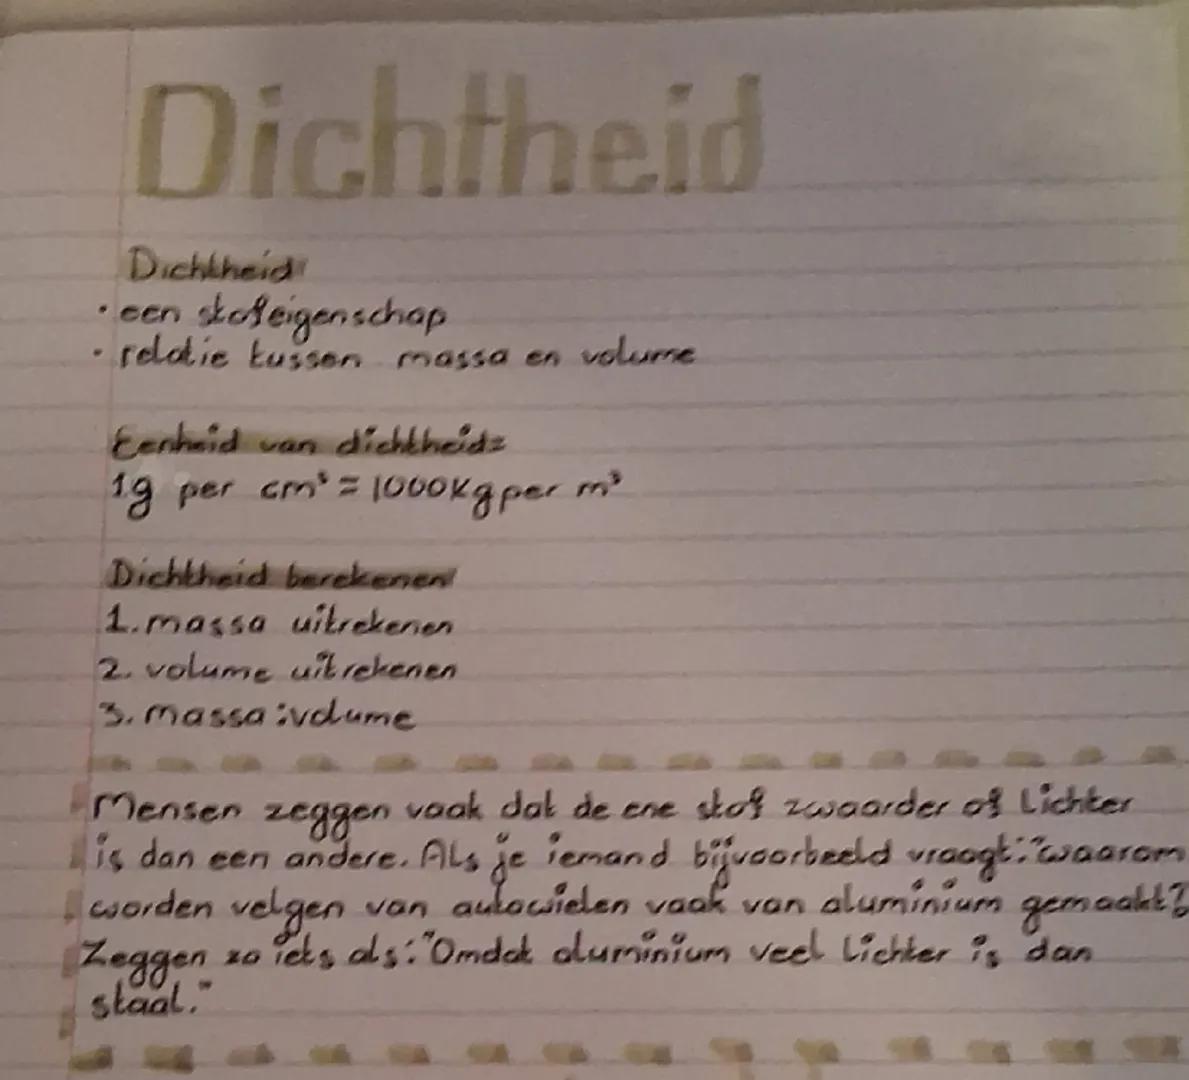 Dichtheid
Dichtheid:
• een stofeigenschap
• relatie tussen massa en volume
Eenheid van dichtheid:
1g per cm³ = 1000kg per m³
Dichtheid berekenen:
1. massa uitrekenen
2. volume uitrekenen
3. massa : volume
Mensen zeggen vaak dat de ene stof zwaarder of lichter
is dan een andere. Als je iemand bijvoorbeeld vraagt: "waarom
worden velgen van autowielen vaak van aluminium gemaakt?
Zeggen zo iets als: "Omdat aluminium veel lichter is dan
staal."